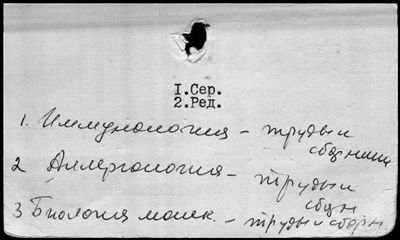 1.Сер.
2.Ред.
1. Иммунология - труды и
сборники
2 Аллергология - труды и
сборн
3 Биология молек. - труды и сборн